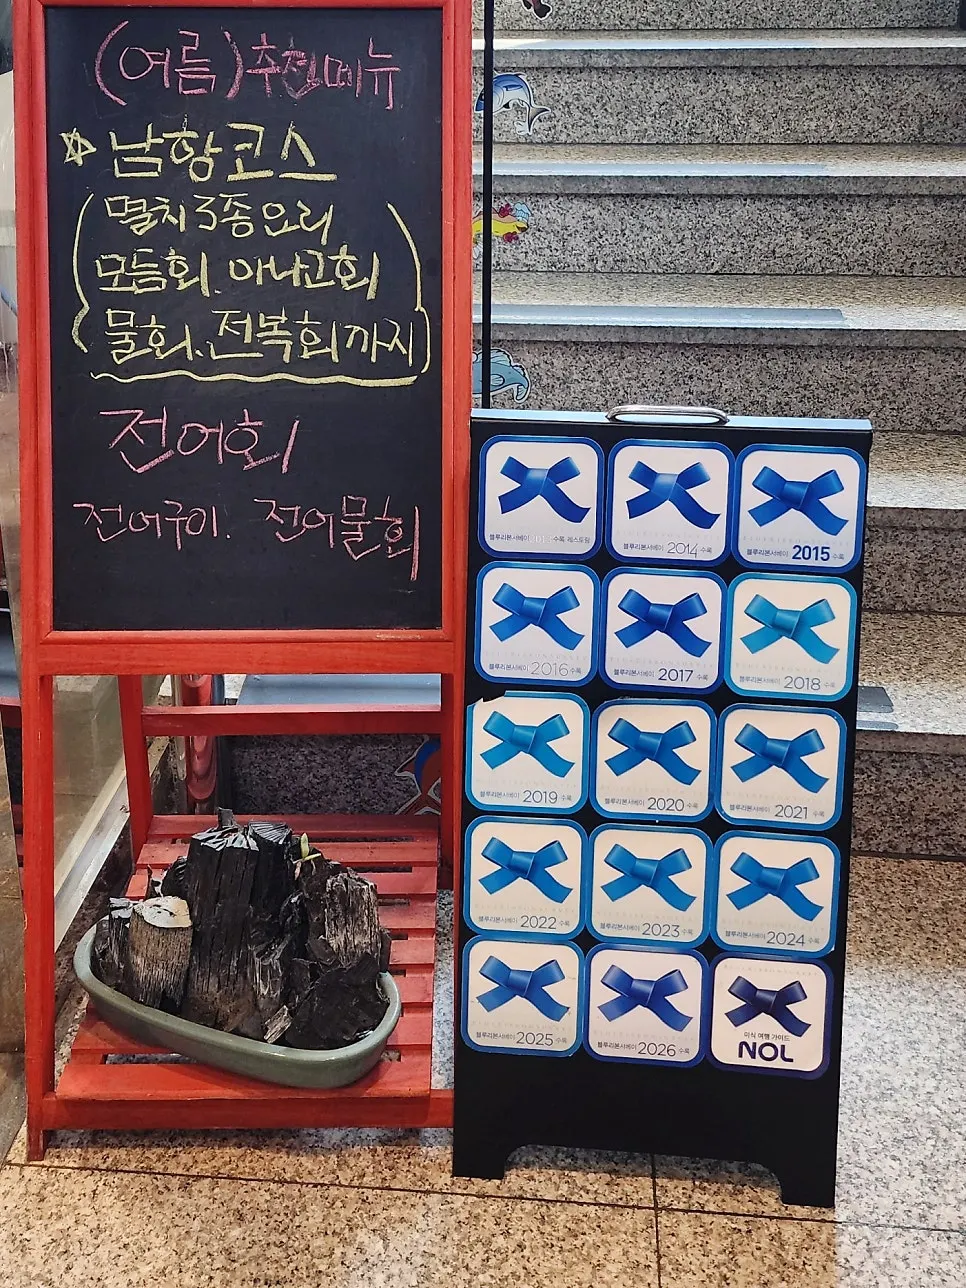 (여름)추천메뉴
남항코스
(멸치 3종요리
모듬회. 아나고회
물회. 전복회까지)
전어회
전어구이. 전어물회
블루리본서베이 2013 수록 레스토랑
블루리본서베이 2014 수록
블루리본서베이 2015 수록
블루리본서베이 2016 수록
블루리본서베이 2017 수록
블루리본서베이 2018 수록
블루리본서베이 2019 수록
블루리본서베이 2020 수록
블루리본서베이 2021 수록
블루리본서베이 2022 수록
블루리본서베이 2023 수록
블루리본서베이 2024 수록
블루리본서베이 2025 수록
블루리본서베이 2026 수록
미식 여행 가이드
NOL